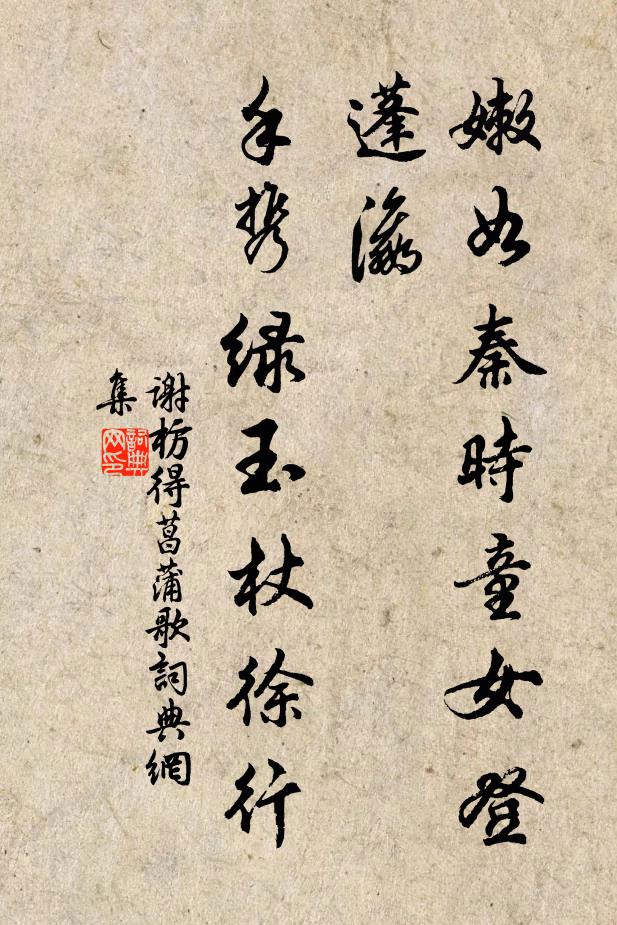 嫩如秦時童女登
蓬瀛
手携绿玉杖徐行
谢枋得菖蒲歌詞典網
集
詞典
网印